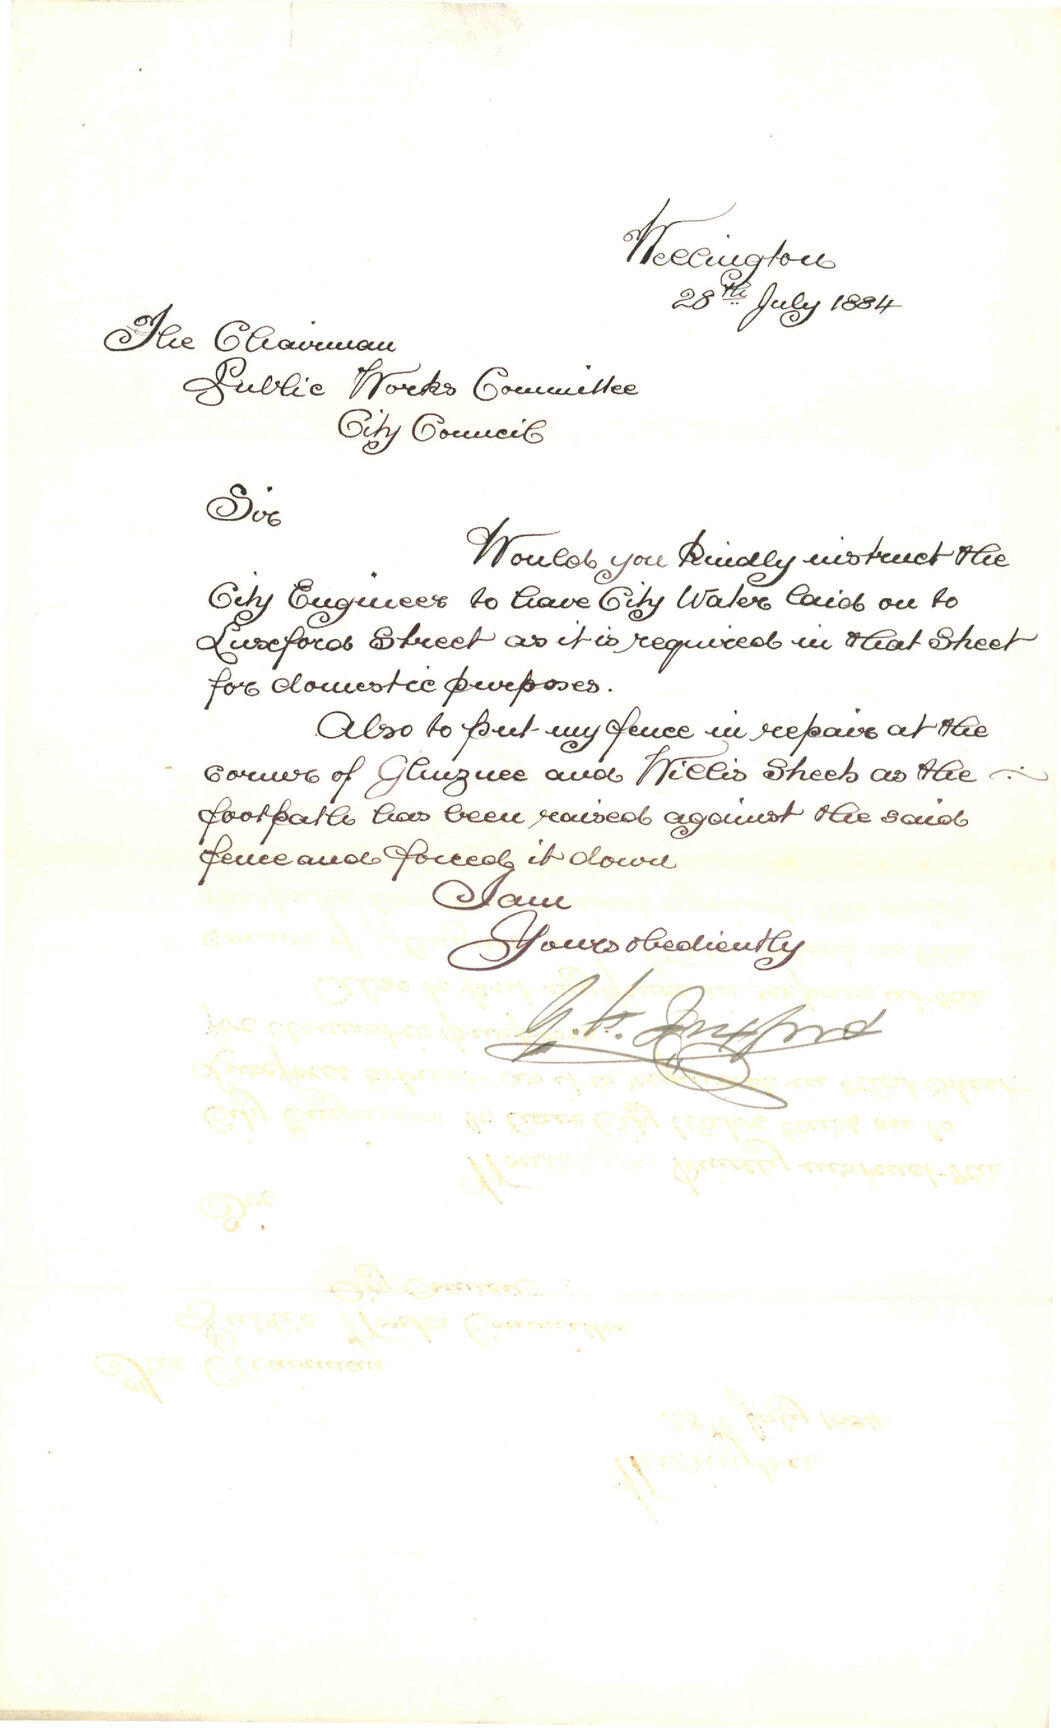 Wellington
28th July 1884
The Chairman
Public Works Committee
City Council
Sir
Would you kindly instruct the
City Engineer to have City Water laid on to
Luxford Street as it is required in that Street
for domestic purposes.
Also to put my fence in repair at the
corner of Ghuznee and Willis Streets as the
footpath has been raised against the said
fence and forced it down
I am
Yours obediently